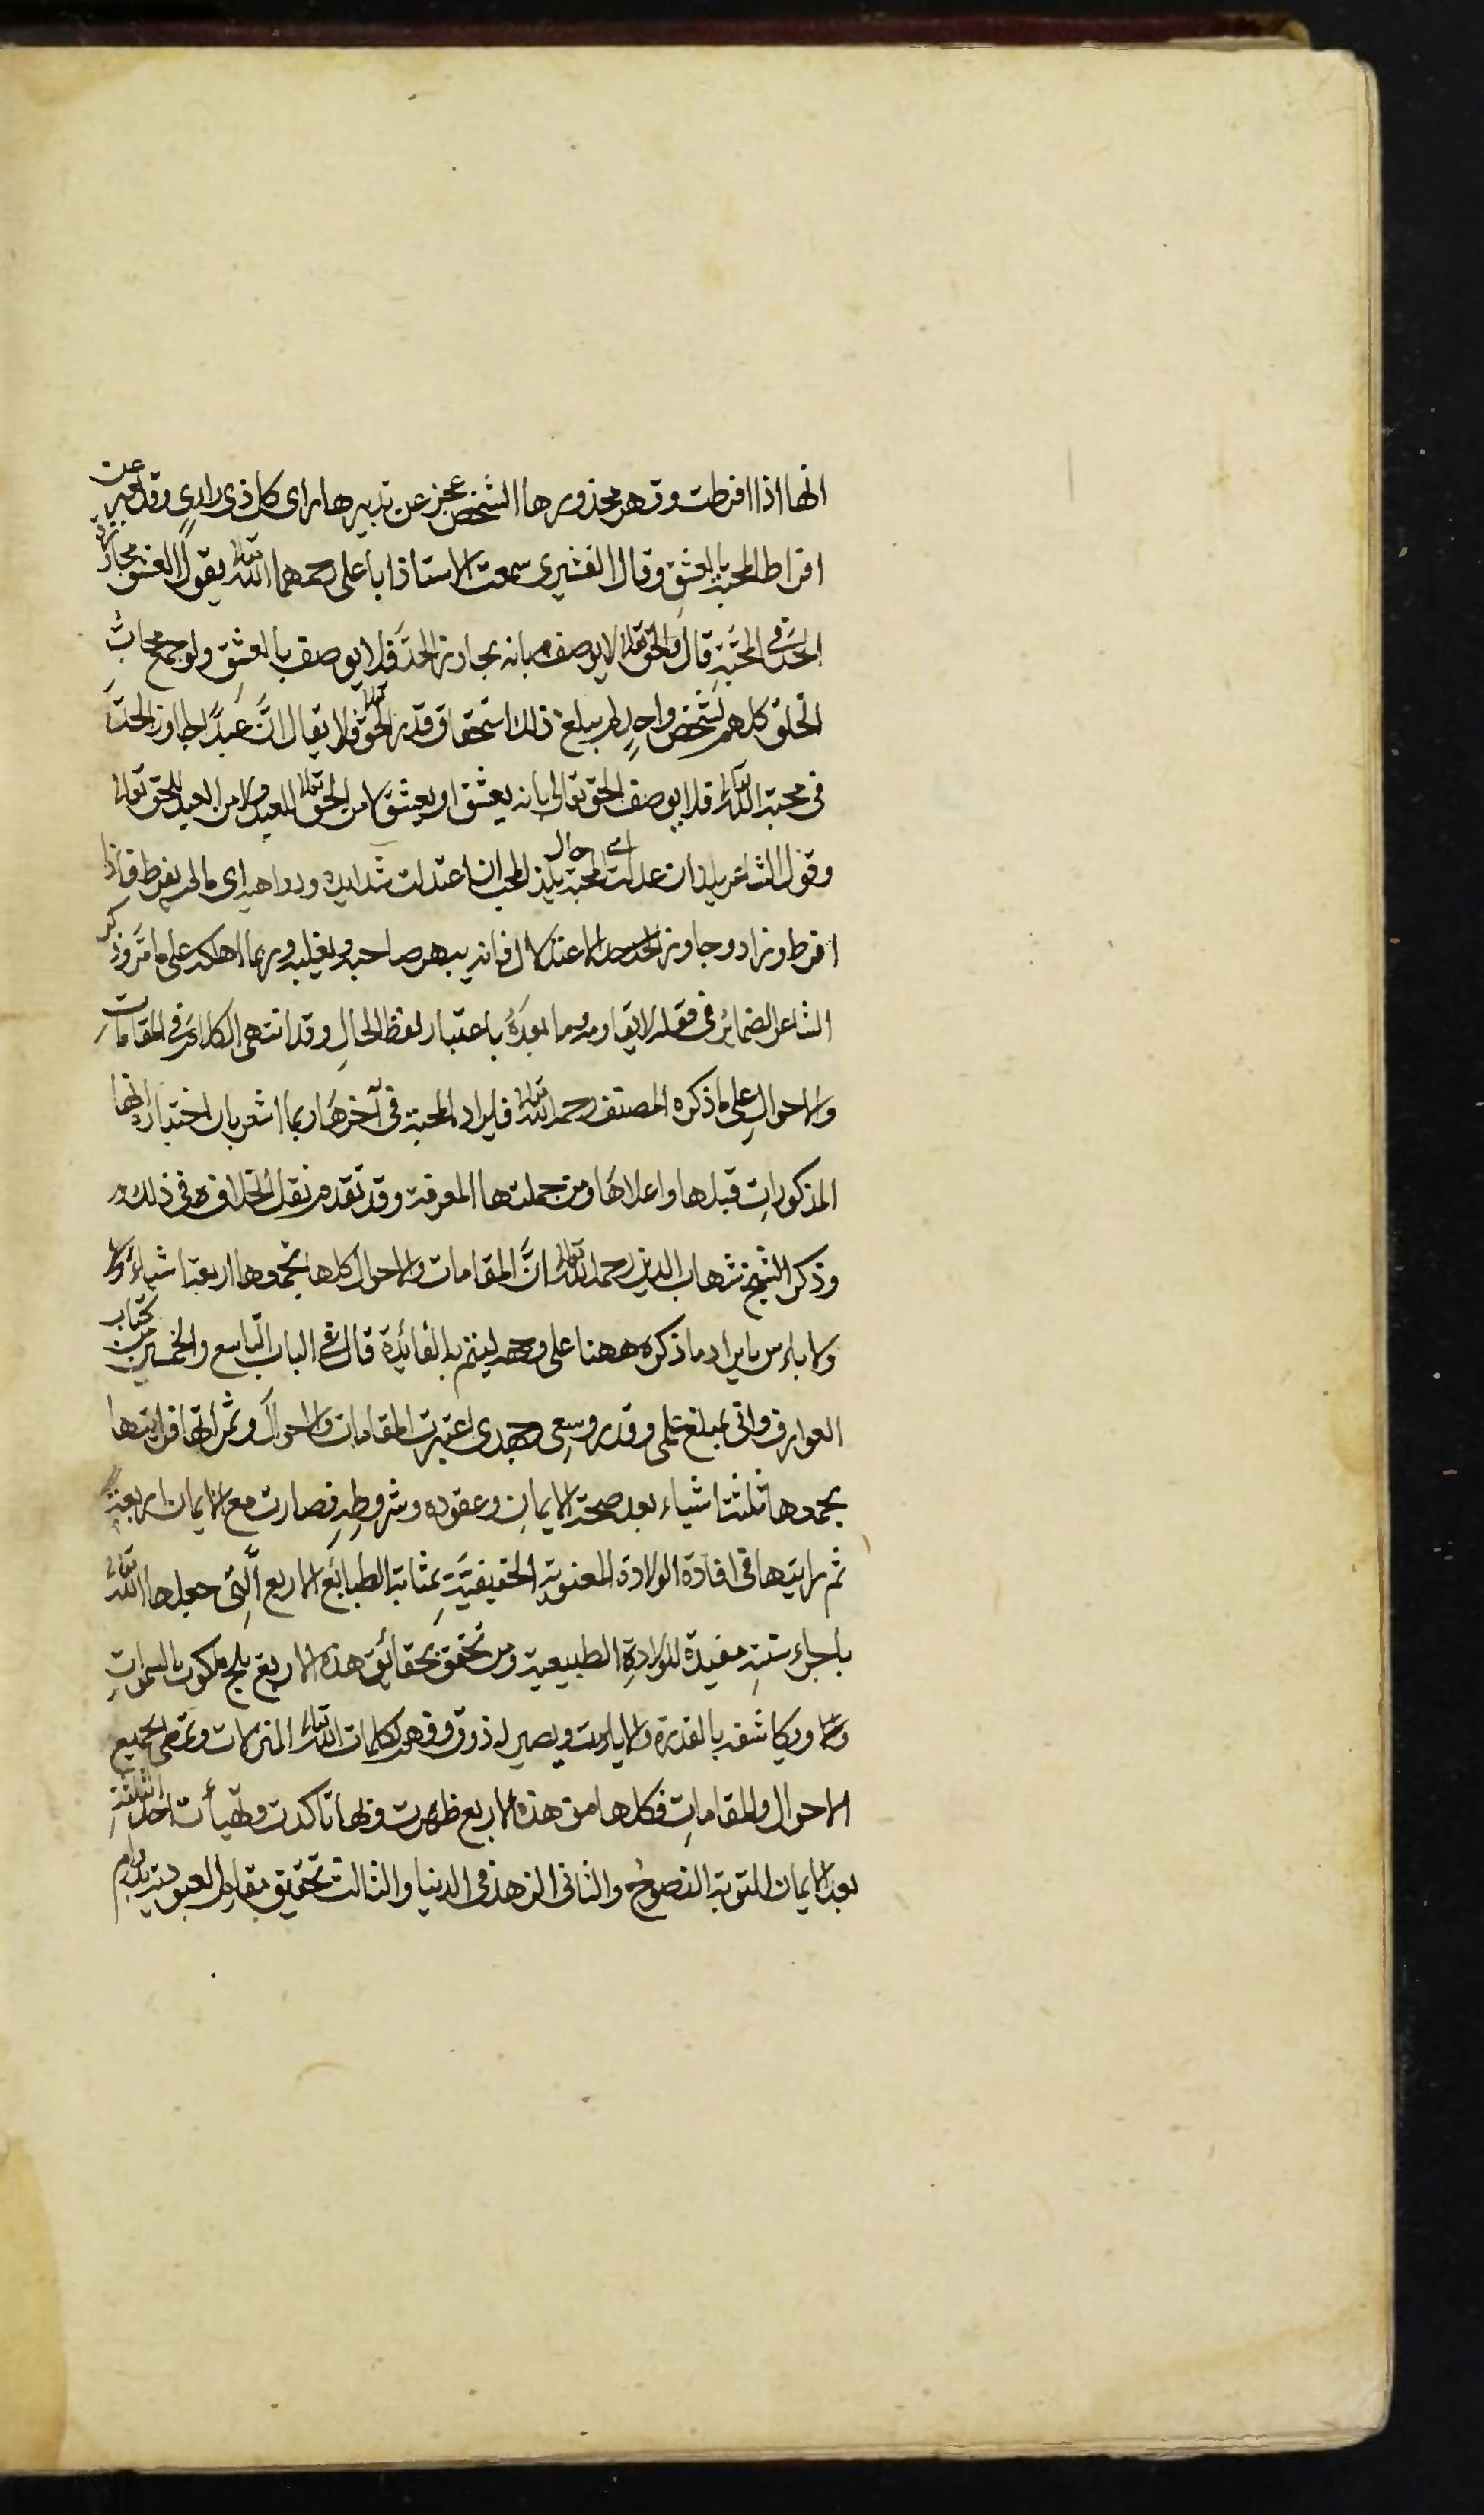 انها اذا افرطت وقهر محذورها الشخص عجز عن تدبيرها راى كل ذى راى وقد يعبر عن
افراط المحبة بالعشق وقال القشيرى سمعت الاستاذ ابا على رحمهما الله تعالى يقول العشق مجاوزة
الحد فى المحبة قال والحق تعالى لا يوصف بانه يجاوز الحد فلا يوصف بالعشق ولو جمع محاب
الخلق كلهم لشخص واحد لم يبلغ ذلك استحقاق قدر الحق تعالى فلا يقال ان عبدا جاوز الحد
فى محبة الله تعالى فلا يوصف الحق تعالى بانه يعشق او يعشق لا من الحق تعالى للعبد ولا من العبد للحق تعالى
وقول الشاعر يلذ ان عدلت اى حال المحبة يلذ المحب ان اعتدلت شدايده ودواهيه اى ما لم يفرط فاذا
افرط وزاد وجاوز الحد حد الاعتدال فانه يبهر صاحبه ويغلبه وربما اهلكه على ما مر وذكر
الشاعر الضمائر فى قوله لا يقاومه وما بعده باعتبار لفظ الحال وقد انتهى الكلام فى المقامات
والاحوال على ما ذكره المصنف رحمه الله تعالى فايراد المحبة فى آخرها ربما اشعر بان اختياره انها
المذكورات قبلها واعلاها ومن جملتها المعرفة وقد تقدم نقل الخلاف فى ذلك
وذكر الشيخ شهاب الدين رحمه الله تعالى ان المقامات والاحوال كلها يجمعها اربعة اشياء
ولا باس بايراد ما ذكره ههنا على وجهه ليتم به الفائدة قال فى الباب التاسع والخمسين من كتاب
العوارف وانى بمبلغ علمى وقدر وسعى وجهدى اعتبرت المقامات والاحوال وثمراتها فرايتها
يجمعها ثلثة اشياء بعد صحة الايمان وعقوده وشروطه فصارت مع الايمان اربعة
ثم رايتها فى افادة الولادة المعنوية الحقيقية بمثابة الطبائع الاربع التى جعلها الله تعالى
باجراء سنته مفيدة للولادة الطبيعية ومن تحقق بحقائق هذه الاربع يلج ملكوت السموات
ويكاشف بالقدر والايات ويصير له ذوق وفهم لكلمات الله تعالى المنزلات ويحظى بجميع
الاحوال والمقامات فكلها من هذه الاربع ظهرت وبها تاكدت وتهيأت احد الثلثة
بعد الايمان التوبة النصوح والثانى الزهد فى الدنيا والثالث تحقيق مقام العبودية بدوام